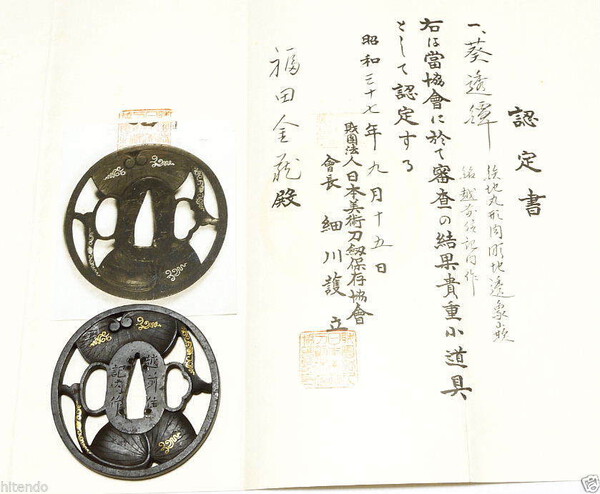 認定書
一、葵透鐔
鉄地丸形肉彫地透象嵌
銘越前住記内作
右は當協會に於て審査の結果貴重小道具
として認定する
昭和三十七年九月十五日
財團法人日本美術刀劍保存協會
會長 細川護立
福田金蔵殿
越前住
記内作
hitendo
hitendo